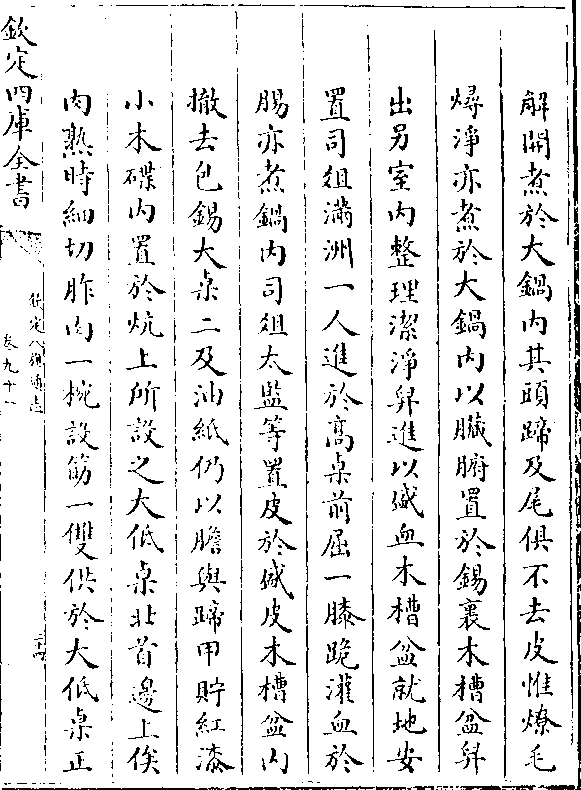 解開煮於大鍋内其頭蹄及尾俱不去皮惟燎毛
燖淨亦煮於大鍋内以臟腑置於錫裏木槽盆舁
出另室内整理潔淨舁進以盛血木槽盆就地安
置司俎滿洲一人進於髙桌前屈一膝跪灌血於
腸亦煮鍋内司俎太監等置皮於盛皮木槽盆内
撤去包錫大桌二及油紙仍以膽與蹄甲貯紅漆
小木碟内置於炕上所設之大低桌北首邊上俟
肉熟時細切胙肉一椀設筯一雙供於大低桌正
欽定四庫全書
欽定八旗通志
卷九十一
二十四